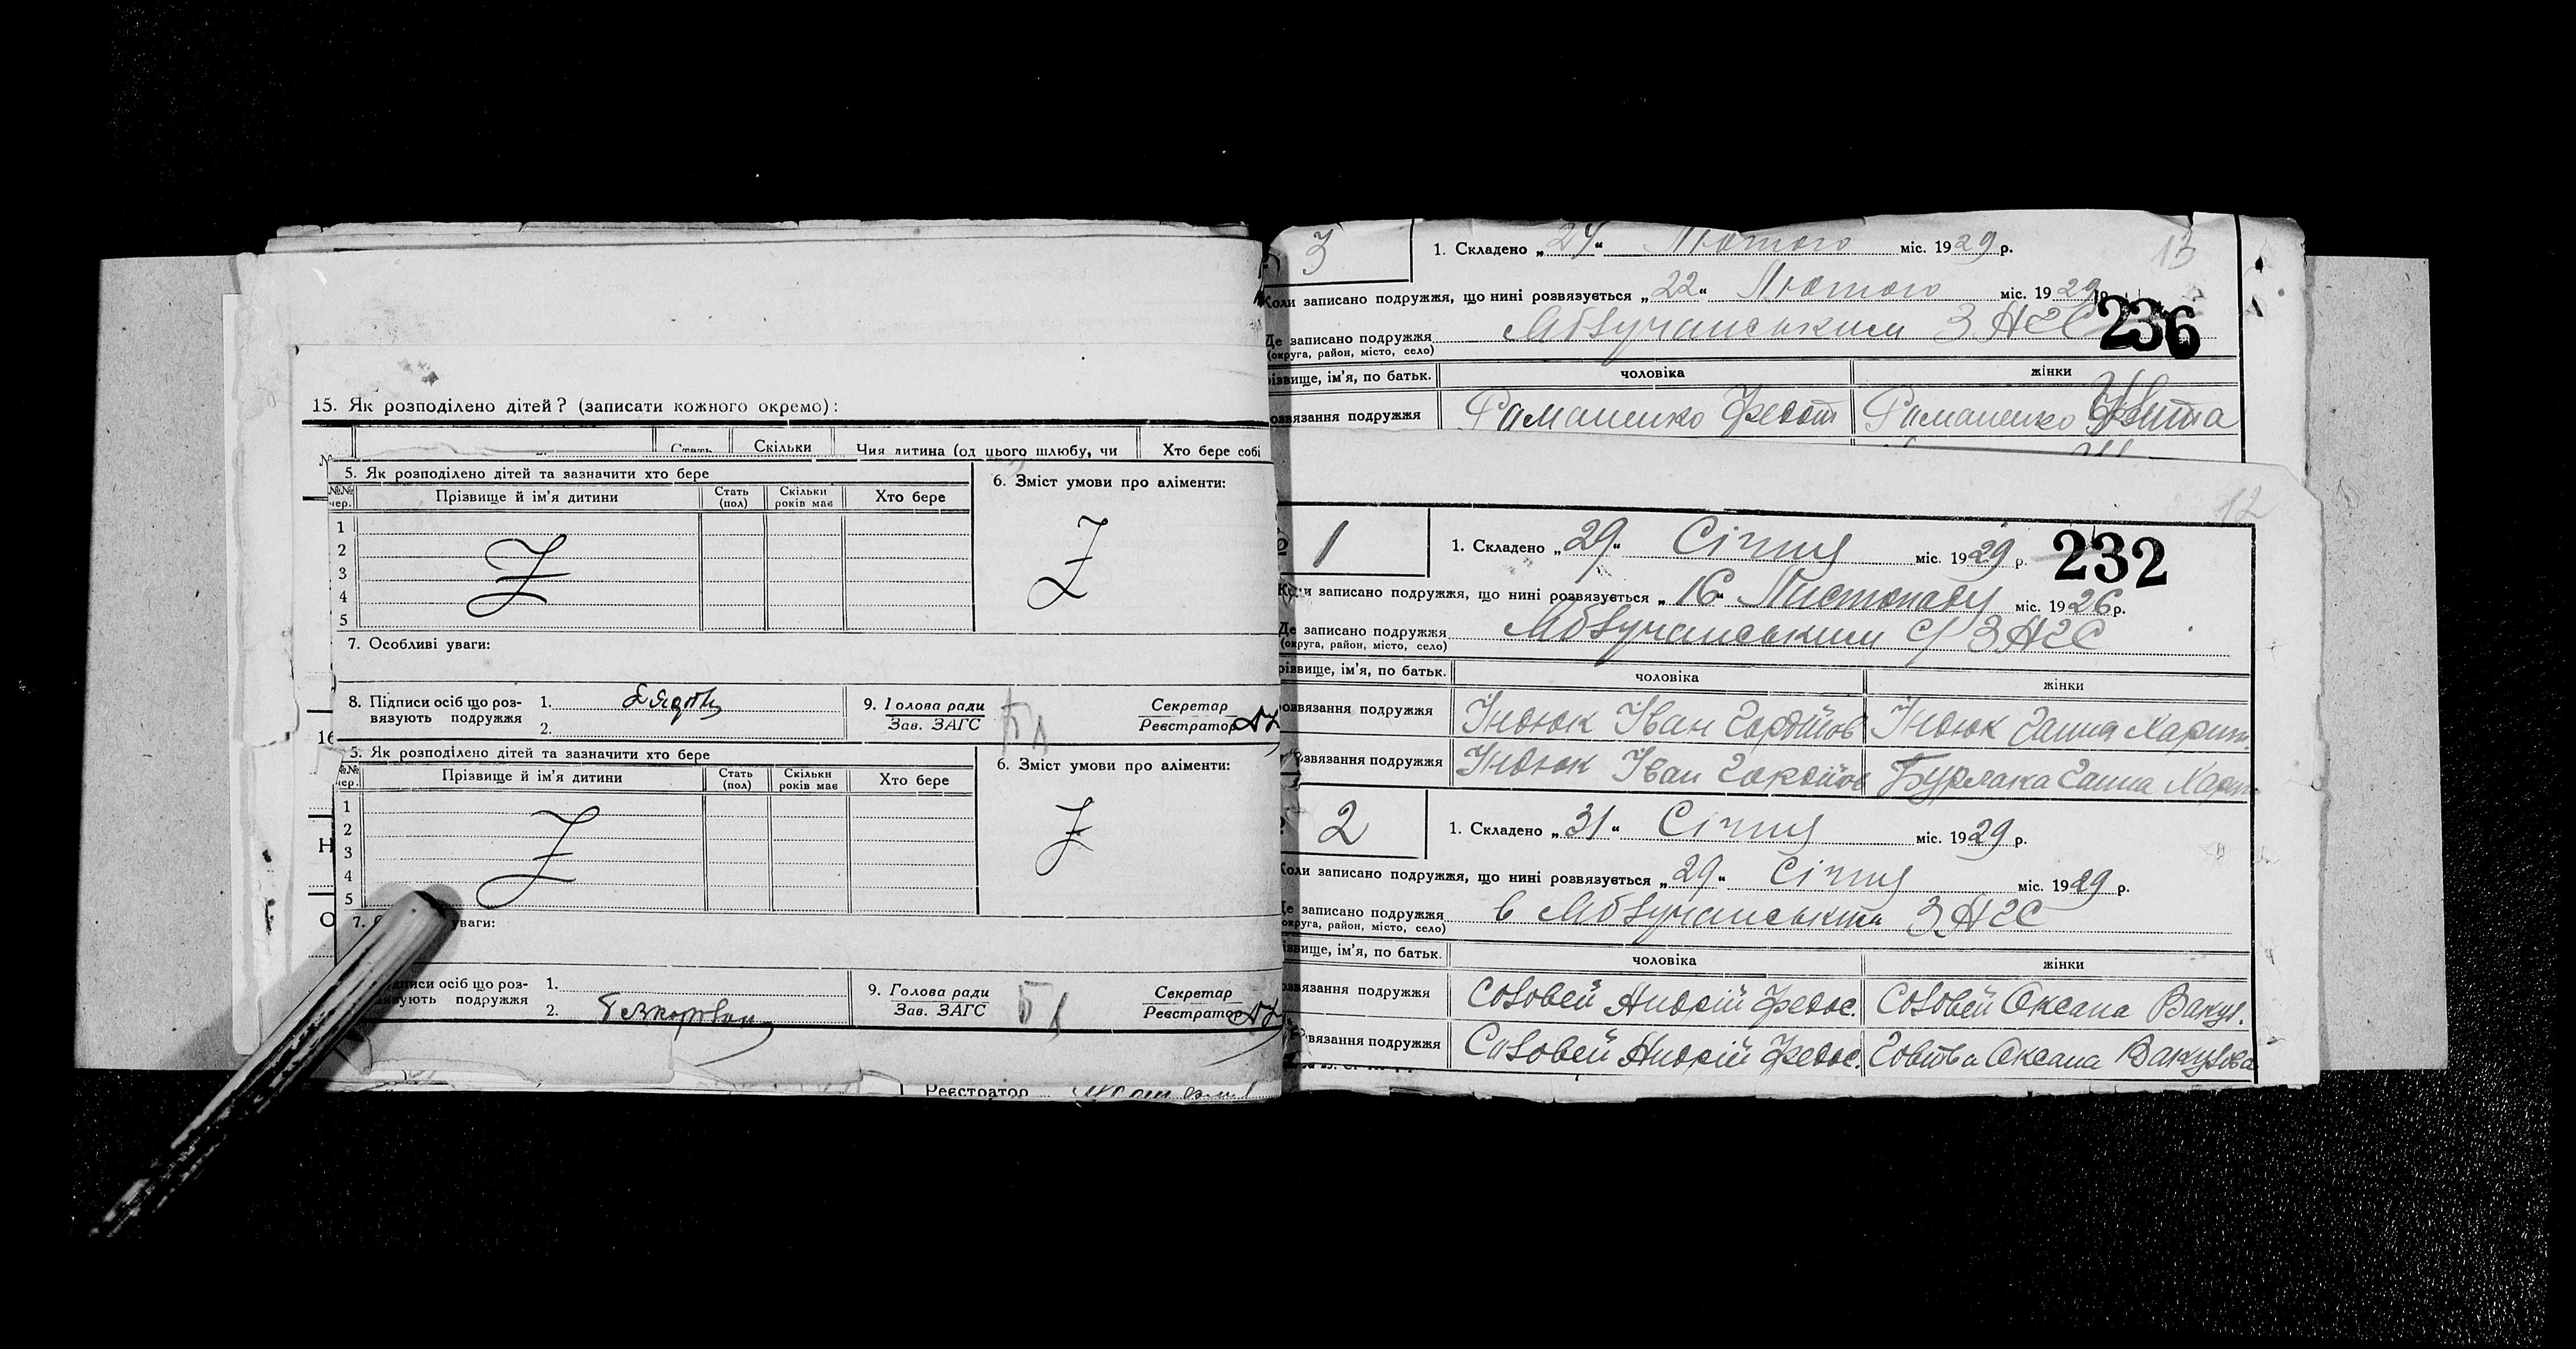 15. Як розподілено дітей? (записати кожного окремо):
Стать Скільки Чия дитина (од цього шлюбу, чи Хто бере собі
5. Як розподілено дітей та зазначити хто бере
6. Зміст умови про аліменти:
№№ чер. Прізвище й ім'я дитини Стать (пол) Скільки років має Хто бере
1
2
3
4
5
Z Z
7. Особливі уваги:
8. Підписи осіб що роз-
вязують подружжя
1.
2.
9. Голова ради
Зав. ЗАГС
Секретар
Реєстратор
16
5. Як розподілено дітей та зазначити хто бере
6. Зміст умови про аліменти:
№№ чер. Прізвище й ім'я дитини Стать (пол) Скільки років має Хто бере
1
2
3
4
5
Z Z
7. уваги:
осіб що роз-
подружжя
1.
2.
9. Голова ради
Зав. ЗАГС
Секретар
Реєстратор
Реєстратор
3 1. Складено „24“ Лютого міс. 1929 р. 13
Коли записано подружжя, що нині розвязується „22“ Лютого міс. 1929 р.
236
Де записано подружжя ЗАГС
(округа, район, місто, село)
ім'я, по батьк. чоловіка жінки
подружжя Романенко Федот Романенко
12
1 1. Складено „29“ Січня міс. 1929 р. 232
записано подружжя, що нині розвязується „16“ Листопаду міс. 1926 р.
Де записано подружжя ЗАГС
(округа, район, місто, село)
ім'я, по батьк. чоловіка жінки
подружжя Індюк Іван Гордійов Індюк Ганна Харит.
подружжя Індюк Іван Бурлака Ганна
2 1. Складено „31“ Січня міс. 1929 р.
Коли записано подружжя, що нині розвязується „29“ Січня міс. 1929 р.
Де записано подружжя в ЗАГС
(округа, район, місто, село)
ім'я, по батьк. чоловіка жінки
подружжя Соловей Андрій Федос. Соловей Оксана Вакул.
подружжя Соловей Андрій Федос. Оксана Вакулова